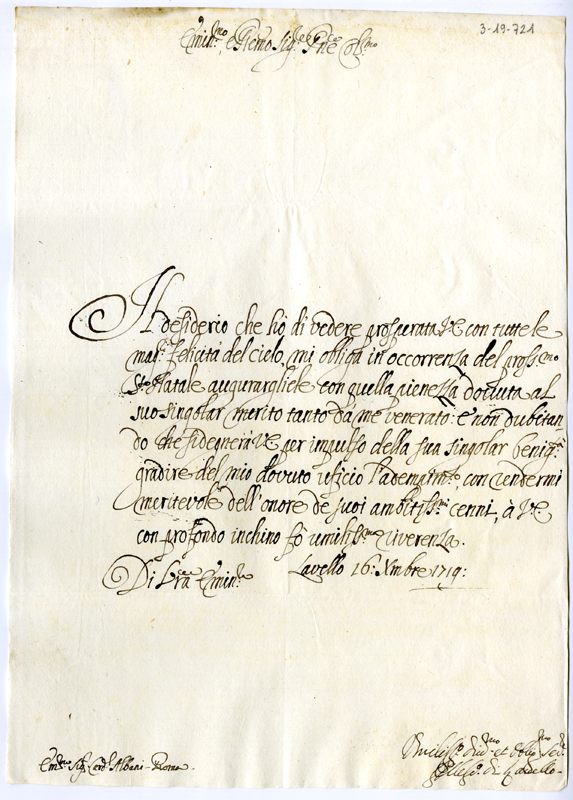 3-19-721
Emin.mo e Remo Sig.re P̃ne Col.mo
Il desiderio che hò di vedere prosperata V̄E con tutte le
mag.ri felicità del cielo, mi obliga in occorrenza del pross.mo
S.to Natale augurargliele con quella pienezza dovuta al
suo singolar merito tanto da me venerato: e non dubitan
do che si degnerà V̄E per impulso della sua singolar benig.tà
gradire del mio dovuto uficio l'adempim.to, con rendermi
meritevole dell'onore de suoi ambitiss.mi cenni, à V̄E
con profondo inchino fò umiliss.ma riverenza.
Di V̄ra Emin.za Lavello 16: Xmbre 1719:
Umiliss.o div.mo et oblig.mo Ser.e
di Lavello
Em.mo Sig.r Card.l Albani - Roma -